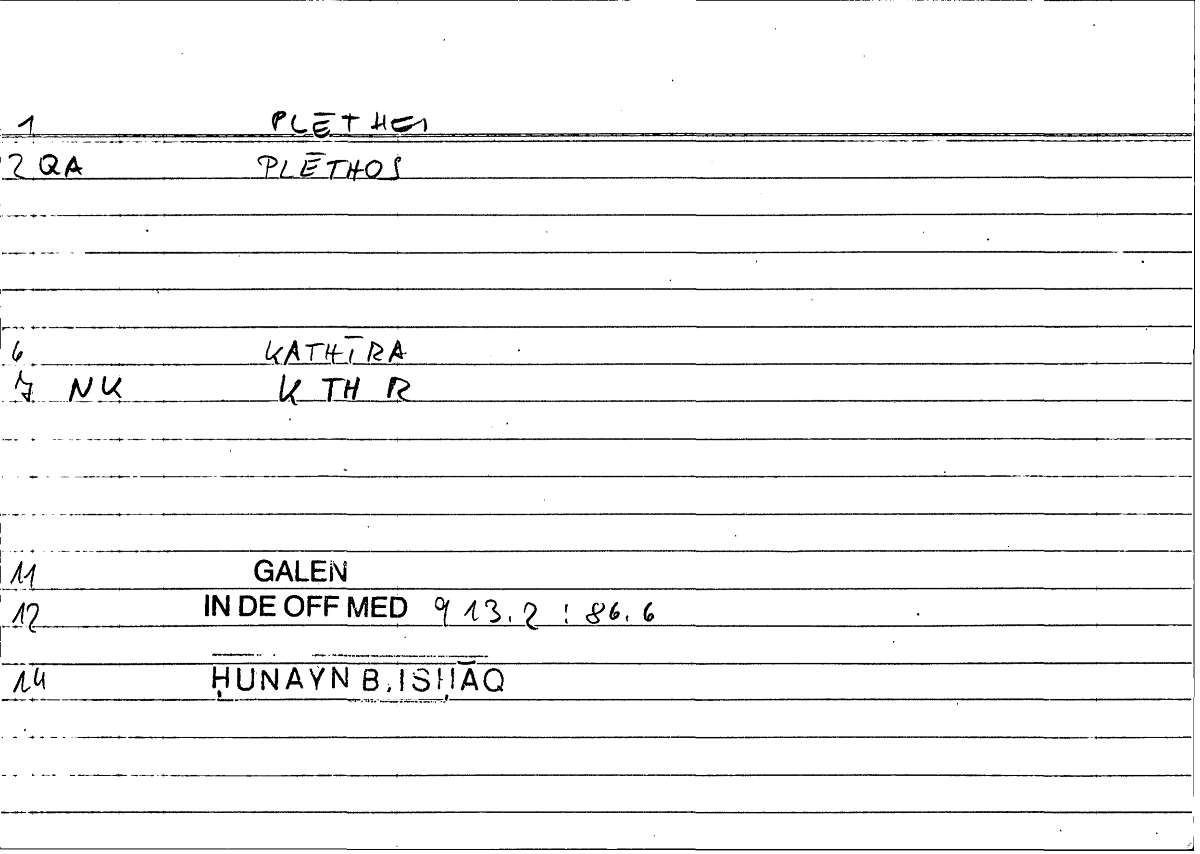 1 PLĒTHEI
2 QA PLĒTHOS
6 KATHĪRA
7 NK K TH R
11 GALEN
12 IN DE OFF MED 913.2 : 86.6
14 ḤUNAYN B. ISḤĀQ